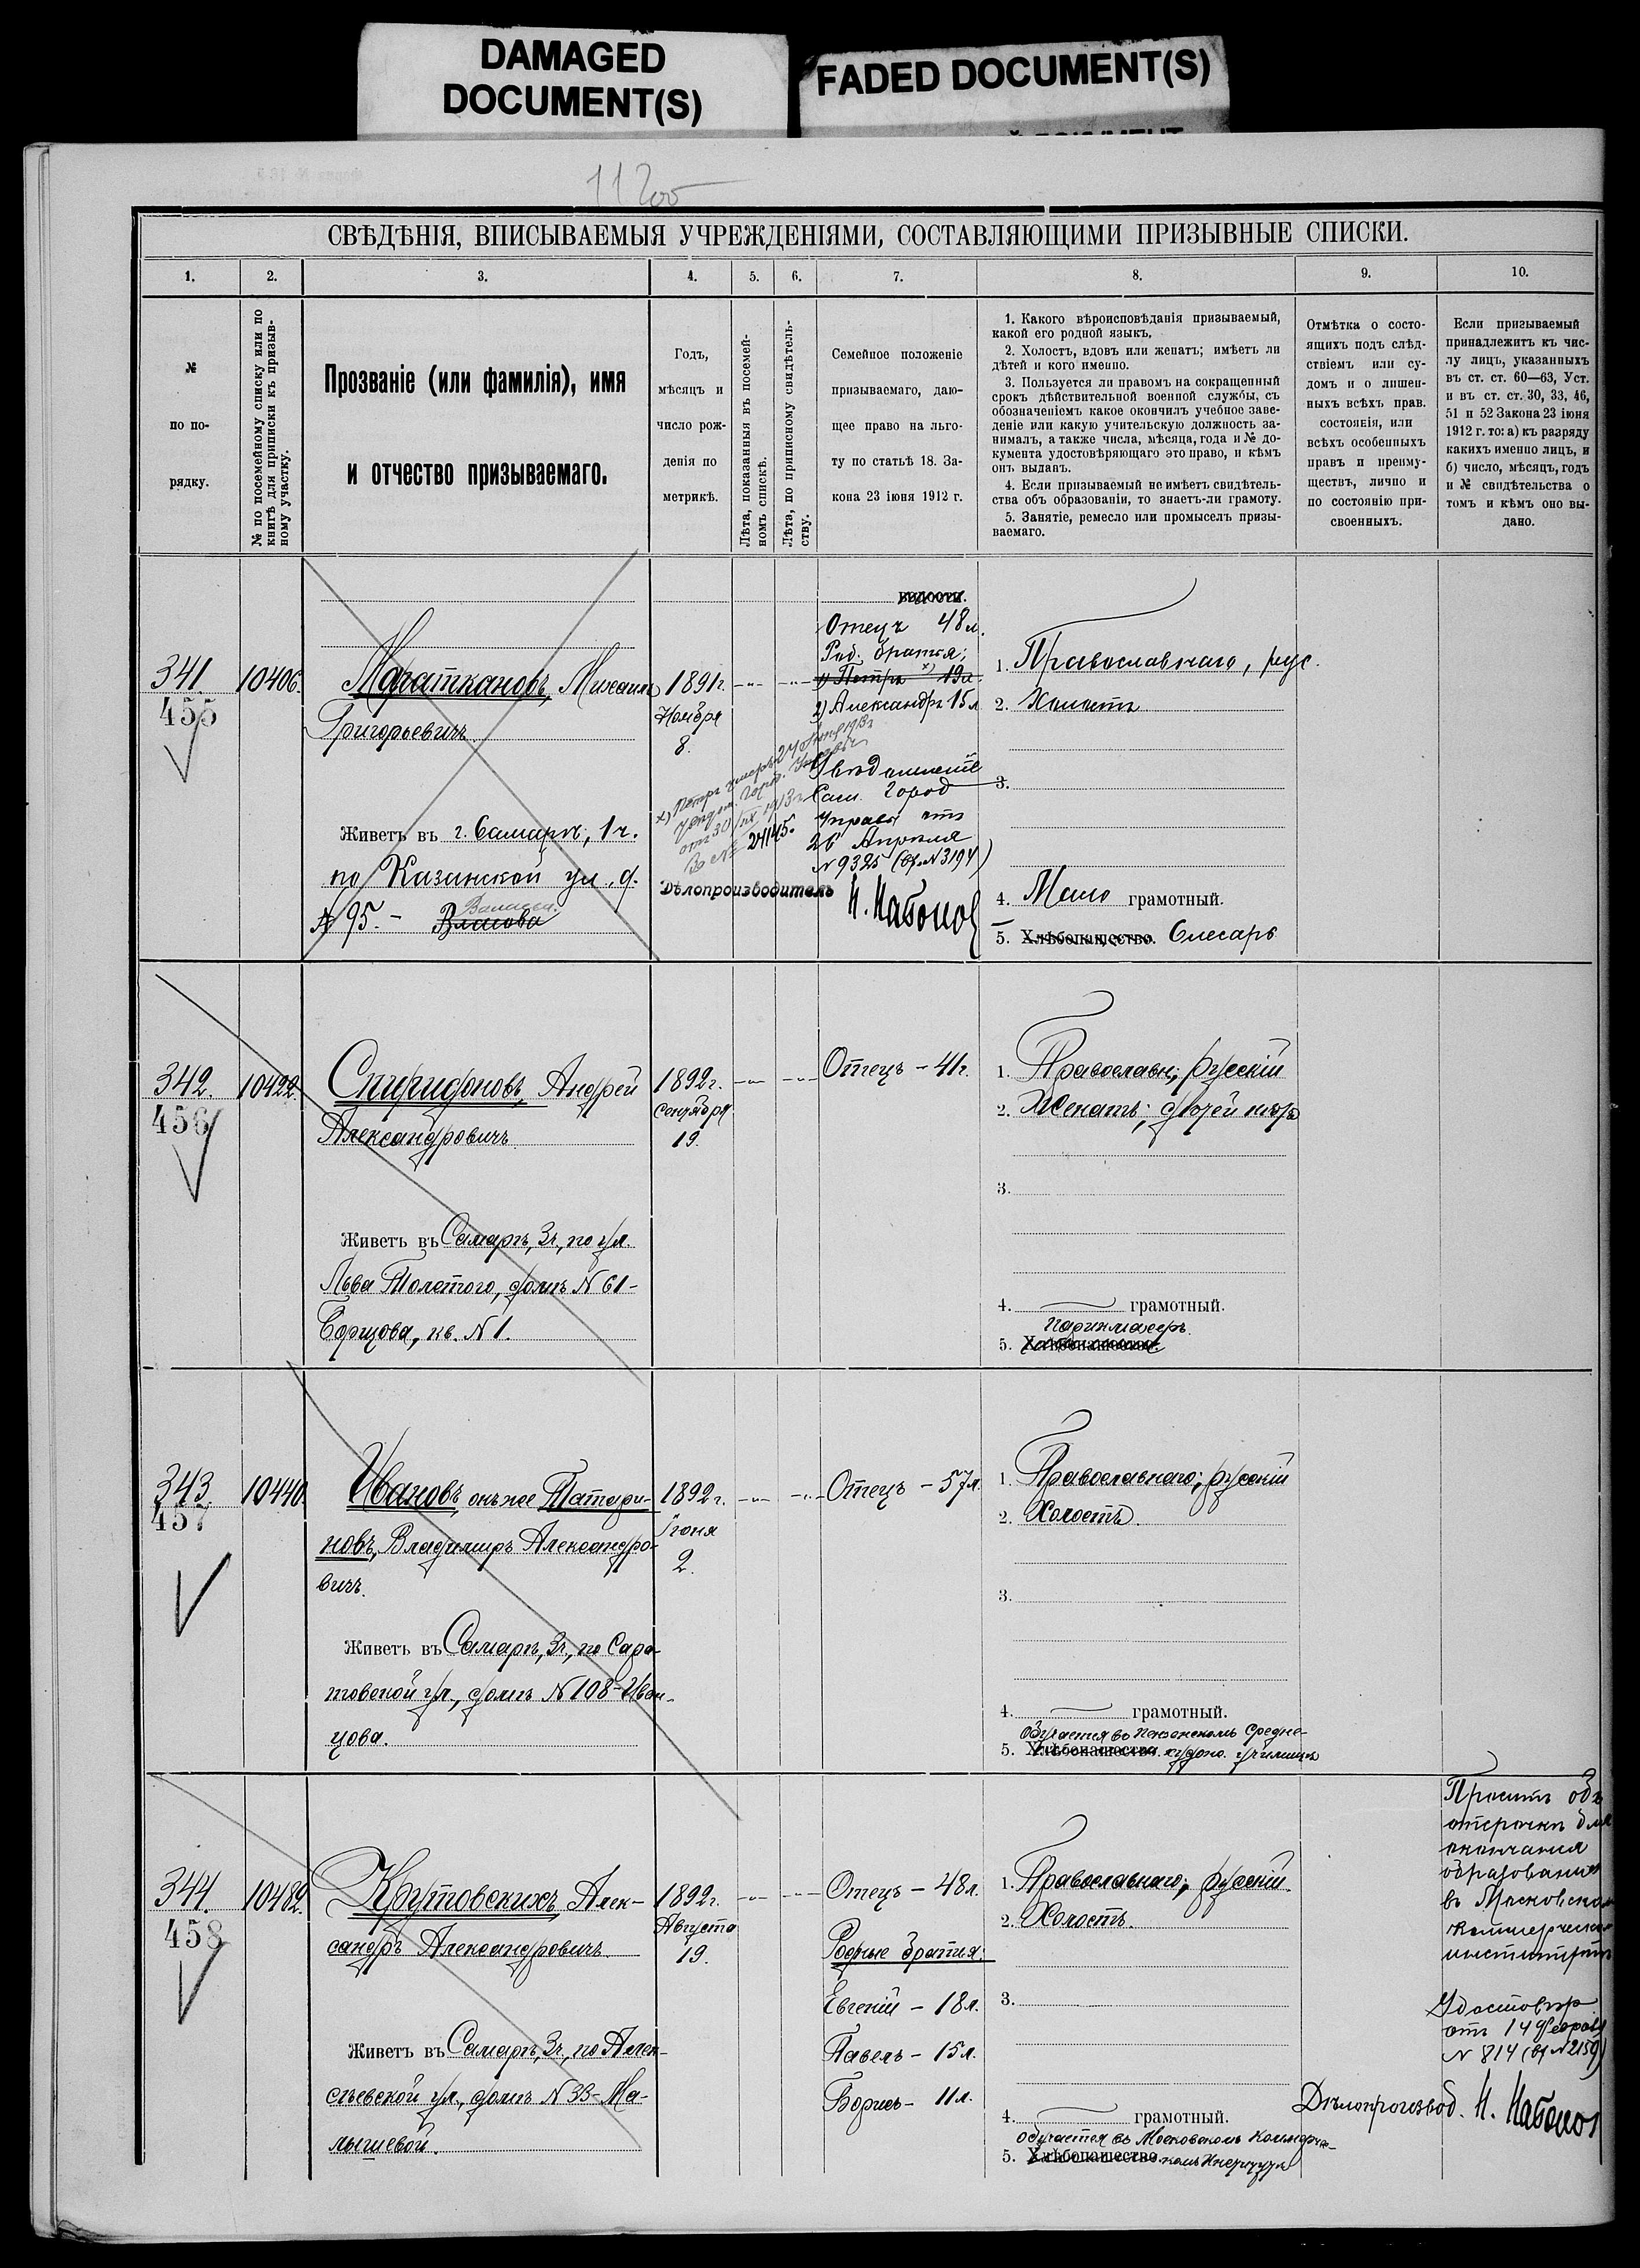 DAMAGED
DOCUMENT(S)
FADED DOCUMENT(S)
СВѢДѢНІЯ, ВПИСЫВАЕМЫЯ УЧРЕЖДЕНІЯМИ, СОСТАВЛЯЮЩИМИ ПРИЗЫВНЫЕ СПИСКИ.
1. 2. 3. 4. 5. 6. 7. 8. 9. 10.
№
по по-
рядку.
№ по посемейному списку или по
книгѣ для приписки къ призыв-
ному участку.
Прозваніе (или фамилія), имя
и отчество призываемаго.
Годъ,
мѣсяцъ и
число рож-
денія по
метрикѣ.
Лѣта, показанныя въ посемей-
номъ спискѣ.
Лѣта, по приписному свидѣтель-
ству.
Семейное положеніе
призываемаго, даю-
щее право на льго-
ту по статьѣ 18. За-
кона 23 іюня 1912 г.
1. Какого вѣроисповѣданія призываемый,
какой его родной языкъ.
2. Холостъ, вдовъ или женатъ; имѣетъ ли
дѣтей и кого именно.
3. Пользуется ли правомъ на сокращенный
срокъ дѣйствительной военной службы, съ
обозначеніемъ какое окончилъ учебное заве-
деніе или какую учительскую должность за-
нималъ, а также числа, мѣсяца, года и № до-
кумента удостовѣряющаго это право, и кѣмъ
онъ выданъ.
4. Если призываемый не имѣетъ свидѣтель-
ства объ образованіи, то знаетъ-ли грамоту.
5. Занятіе, ремесло или промыселъ призы-
ваемаго.
Отмѣтка о состо-
ящихъ подъ слѣд-
ствіемъ или су-
домъ и о лишен-
ныхъ всѣхъ прав.
состоянія, или
всѣхъ особенныхъ
правъ и преиму-
ществъ, лично и
по состоянію при-
своенныхъ.
Если призываемый
принадлежитъ къ чис-
лу лицъ, указанныхъ
въ ст. ст. 60—63, Уст.
и въ ст. ст. 30, 33, 46,
51 и 52 Закона 23 іюня
1912 г. то: а) къ разряду
какихъ именно лицъ, и
б) число, мѣсяцъ, годъ
и № свидѣтельства о
томъ и кѣмъ оно вы-
дано.
341.
455
10406.
Михаилъ
Григорьевичъ
Живетъ въ г. Самарѣ, 1 ч.
по Казанской ул. д.
№ 95. -
Власова
1891 г.
Ноября
8.
Отецъ 48 л.
Род. братья:
1) Петръ х) 19 л.
2) Александръ 15 л.
Сам. Город
Управы отъ
26 Апрѣля
№ 9325 (вх. № 3194)
24145.
Дѣлопроизводитель
1. Православнаго, рус.
2. Холостъ
3.
4. Мало грамотный.
5. Хлѣбопашество. Слесарь
342.
456
10422.
Спиридоновъ, Андрей
Александровичъ
Живетъ въ Самарѣ, 3 ч., по ул.
Льва Толстого, домъ № 61-
Борщова, кв. № 1.
1892 г.
Сентября
19.
Отецъ - 41 г.
1. Православн.; русскій
2. Женатъ; дѣтей нѣтъ
3.
4. грамотный.
Парикмахеръ.
5. Хлѣбопашество.
343.
457
10440.
Ивановъ, онъ же Татари-
новъ, Владимиръ Александро-
вичъ.
Живетъ въ Самарѣ, 3 ч., по Сара-
товской ул., домъ № 108 - Ивон-
цова.
1892 г.
Іюня
2.
Отецъ - 57 л.
1. Православнаго; русскій
2. Холостъ.
3.
4. грамотный.
Обучается въ Пензенскомъ Средне-
5. Хлѣбопашество. худож. училищѣ
344.
458
10482.
Крутовскихъ, Алек-
сандръ Александровичъ.
Живетъ въ Самарѣ, 3 ч., по Алек-
сѣевской ул., домъ № 33 - Ма-
лышевой.
1892 г.
Августа
19.
Отецъ - 48 л.
Родные братья:
Евгеній - 18 л.
Павелъ - 15 л.
Борисъ - 11 л.
1. Православнаго; русскій.
2. Холостъ.
3.
4. грамотный.
обучается въ Московскомъ Коммерче-
5. Хлѣбопашество. скомъ Институтѣ
Проситъ объ
отсрочкѣ для
окончанія
образованія
въ Московском
Коммерческом
институтѣ
Удостовѣр.
отъ 14 Февраля
№ 814 (вх. № 2159)
Дѣлопроизвод.